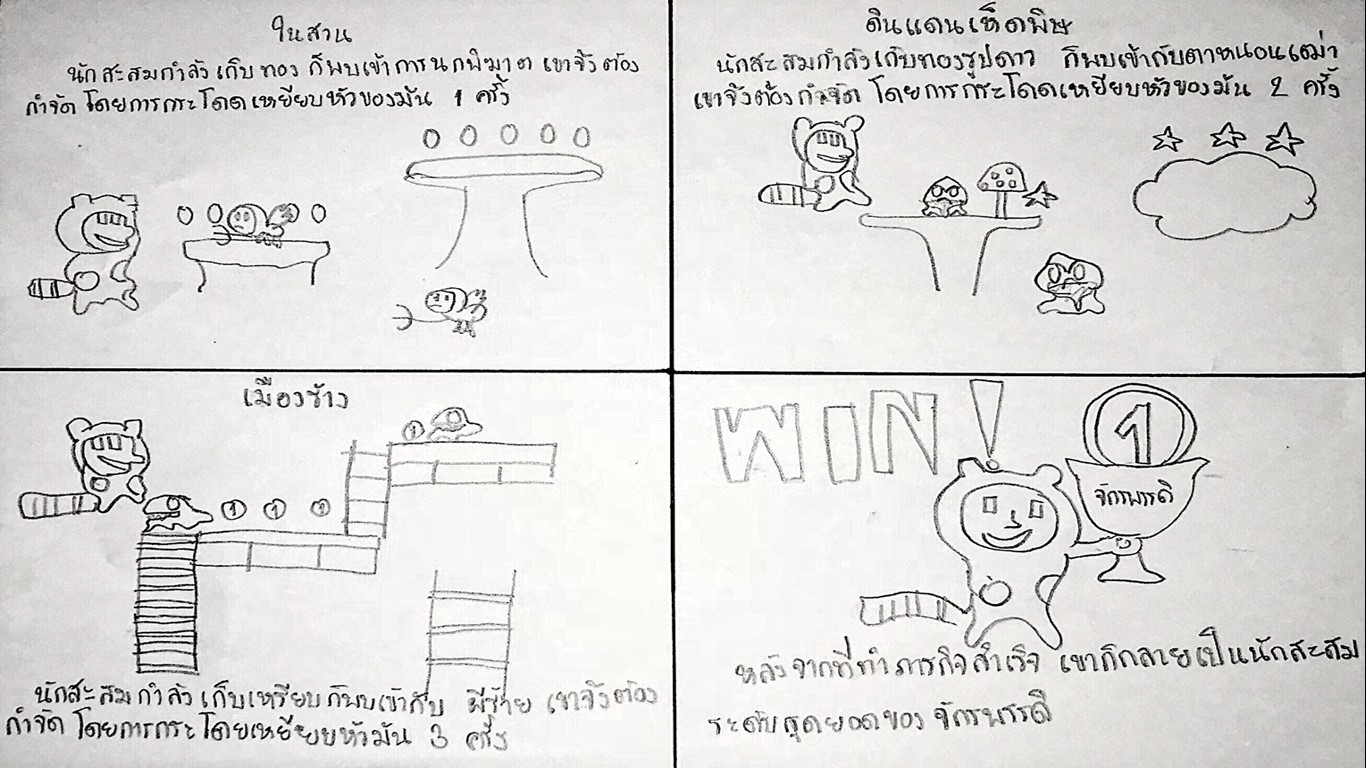 ในสวน
นักสะสมกำลังเก็บทอง ก็พบเข้าการนกพิฆาต เขาจึงต้อง
กำจัด โดยการกระโดดเหยียบหัวของมัน 1 ครั้ง
ดินแดนเห็ดพิษ
นักสะสมกำลังเก็บทองรูปดาว ก็พบเข้ากับตาหนอนเฒ่า
เขาจึงต้องกำจัด โดยการกระโดดเหยียบหัวของมัน 2 ครั้ง
เมืองร้าง
1
1 1 1
นักสะสมกำลังเก็บเหรียบ ก็พบเข้ากับ ผีร้าย เขาจึงต้อง
กำจัด โดยการกระโดยเหยียบหัวมัน 3 ครั้ง
WIN!
1
จักรพรรดิ
หลังจากที่ทำภารกิจสำเร็จ เขาก็กลายเป็นนักสะสม
ระดับสุดยอดของ จักรพรรดิ